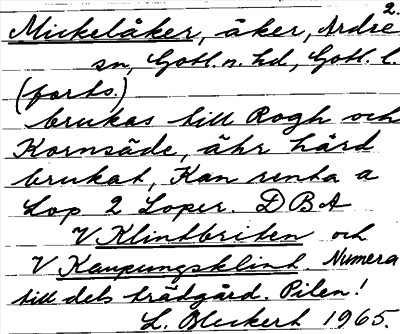 2.
Mickelåker, åker, Ardre
sn, Gotl. n. hd, Gotl. l.
(forts.)
brukas till Rogh och
Kornsäde, ähr hård
brukat, Kan renta a
Lop 2 Loper. DBA
V Klintbriten och
V Kaupungsklint. Numera
till dels trädgård. Pilen!
L. Bleckert 1965.